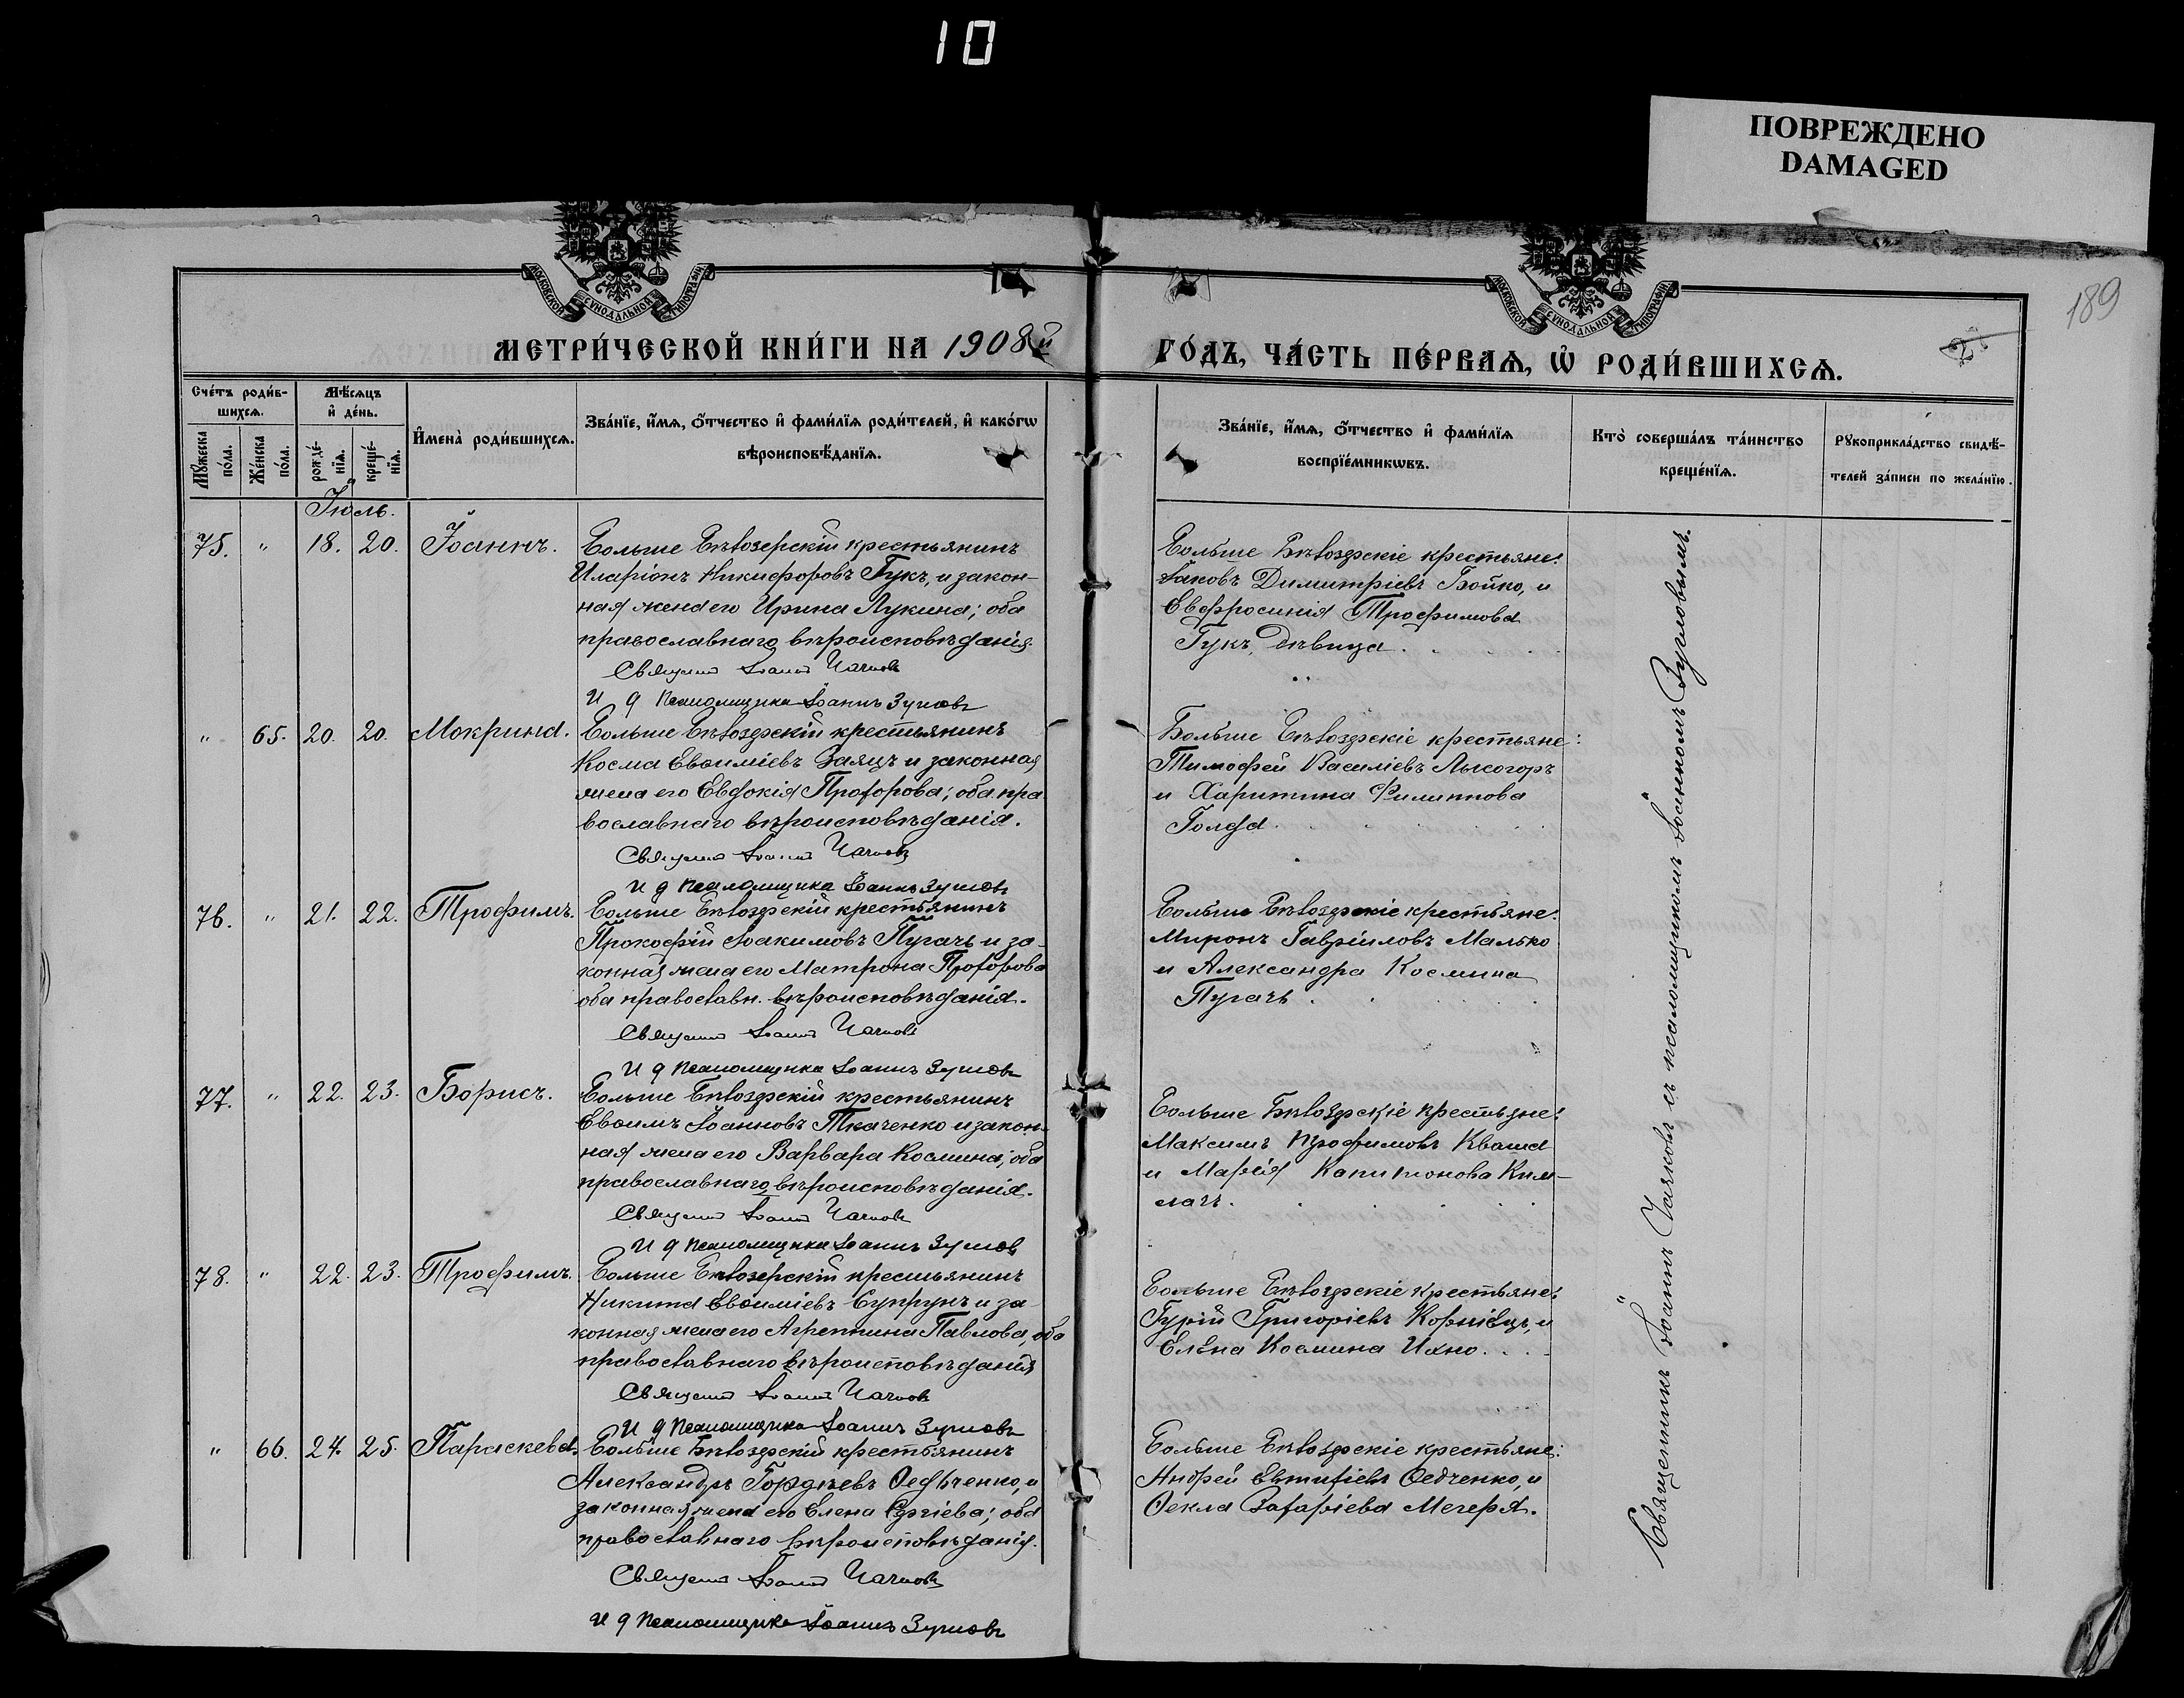 10
ПОВРЕЖДЕНО
DAMAGED
189
МОСКОВСКОЙ СѴНОДАЛЬНОЙ ТИПОГРАФІИ
МОСКОВСКОЙ СѴНОДАЛЬНОЙ ТИПОГРАФІИ
МЕТРИ́ЧЕСКОЙ КНИ́ГИ НА 1908й ГО́ДЪ, ЧА́СТЬ ПЕ́РВАѦ, Ѡ҆ РОДИ́ВШИХСѦ.
Сче́тъ роди́в-
шихсѧ.
Мꙋ́жеска по́ла.
Же́нска по́ла.
Мѣ́сѧцъ
и҆ де́нь.
рожде́-
нїѧ.
креще́-
нїѧ.
И҆мена̀ роди́вшихсѧ.
Зва́нїе, и҆́мѧ, ѻ҆́тчество и҆ фами́лїѧ роди́телей, и҆ како́гѡ
вѣроисповѣ́данїѧ.
Зва́нїе, и҆́мѧ, ѻ҆́тчество и҆ фами́лїѧ
воспрїе́мникѡвъ.
Кто̀ соверша́лъ та́инство
креще́нїѧ.
Рꙋкоприкла́дство свидѣ́-
телей за́писи по жела́нїю.
Іюль.
75. " 18. 20. Іоаннъ.
Больше Бѣлозерскій крестьянинъ
Иларіонъ Никифоровъ Гукъ, и закон-
ная жена его Ирина Лукина; оба
православнаго вѣроисповѣданія.
Священ Іоанн
И д Псаломщика Іоаннъ
Больше Бѣлозерскіе крестьяне:
Іаковъ Димитріевъ Бойко, и
Евфросинія Трофимова
Гукъ, дѣвица.
" 65. 20. 20. Мокрина.
Больше Бѣлозерскій крестьянинъ
Косма Евѳиміевъ Заяцъ и законная
жена его Евдокія Прохорова; оба пра
вославнаго вѣроисповѣданія.
Священ Іоанн
И д Псаломщика Іоаннъ
Больше Бѣлозерскіе крестьяне:
Тимофей Василіевъ Лысогоръ
и Харитина Филиппова
Голда.
76. " 21. 22. Трофимъ.
Больше Бѣлозерскій крестьянинъ
Прокофій Іоакимовъ Пугачъ и за-
конная жена его Матрона Прохорова
оба православн. вѣроисповѣданія.
Священ Іоанн
И д Псаломщика Іоаннъ
Больше Бѣлозерскіе крестьяне:
Миронъ Гавріиловъ Малько
и Александра Космина
Пугачъ.
77. " 22. 23. Борисъ.
Больше Бѣлозерскій крестьянинъ
Евѳимъ Іоанновъ Ткаченко и закон-
ная жена его Варвара Космина; оба
православнаго вѣроисповѣданія.
Священ Іоанн
И д Псаломщика Іоаннъ
Больше Бѣлозерскіе крестьяне:
Максимъ Трофимовъ Кваша
и Марія Капитонова Ким-
лачъ.
78. " 22. 23. Трофимъ.
Больше Бѣлозерскій крестьянинъ
Никита Евѳиміевъ Супрунъ и за-
конная жена его Агрепина Павлова, оба
православнаго вѣроисповѣданія
Священ Іоанн
И д Псаломщика Іоаннъ
Больше Бѣлозерскіе крестьяне:
Гурій Григоріевъ Корніецъ, и
Елена Космина Ихно.
" 66. 24. 25. Параскева.
Больше Бѣлозерскій крестьянинъ
Александръ Гордѣевъ Ѳедченко, и
законная жена его Елена Сергіева; оба
православнаго вѣроисповѣданія.
Священ Іоанн
И д Псаломщика Іоаннъ
Больше Бѣлозерскіе крестьяне:
Андрей Евтихіевъ Ѳедченко, и
Ѳекла Захаріева Мегеря.
Священникъ Іоаннъ съ псаломщикомъ Іоанномъ